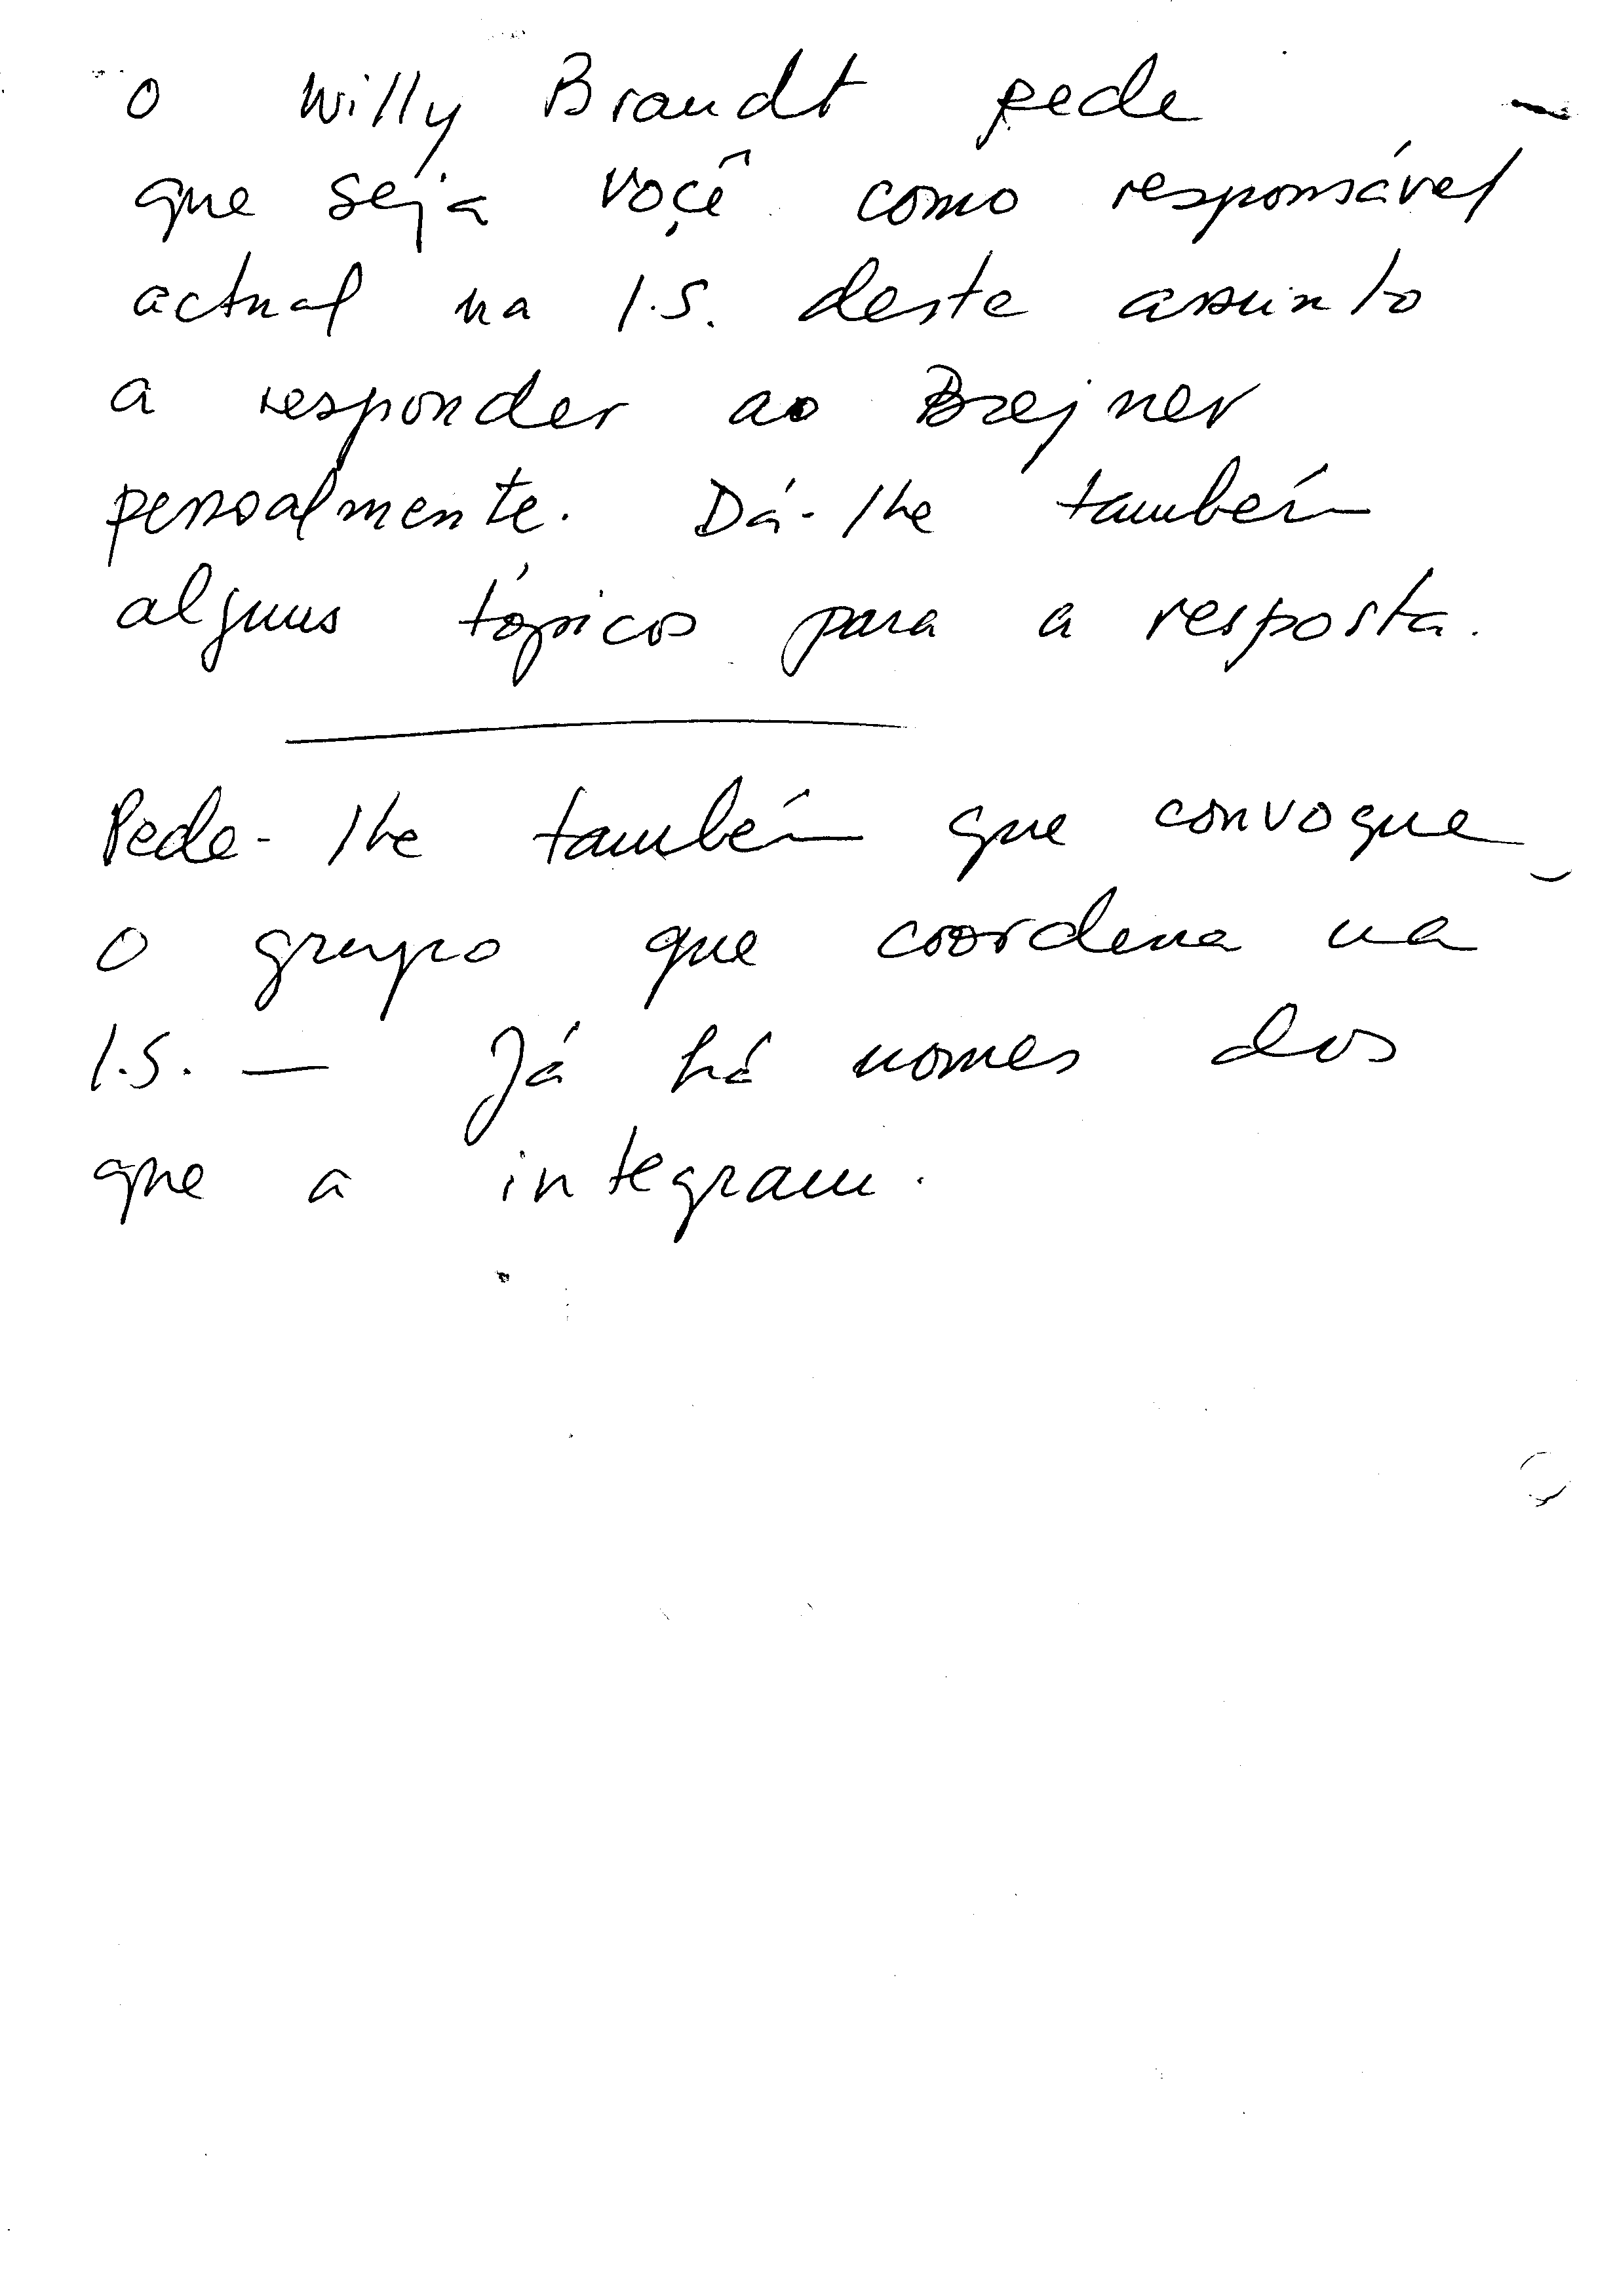 O Willy Brandt pede
que seja voçê como responsável
actual na I.S. deste assunto
a responder ao Brejnev
pessoalmente. Dá-lhe também
alguns tópicos para a resposta.
Pede-lhe também que convoque
o grupo que coordena na
I.S. — Já há nomes dos
que a integram.